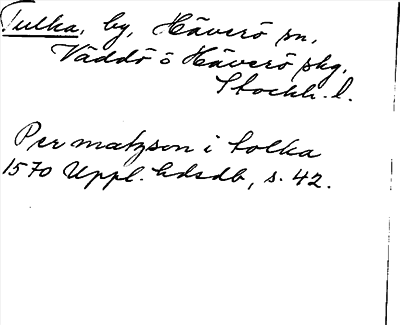 Tulka, by, Häverö sn,
Väddö ö Häverö skg,
Stockh. l.
Per matzson i tolka
1570 Uppl. hdsdb, s. 42.